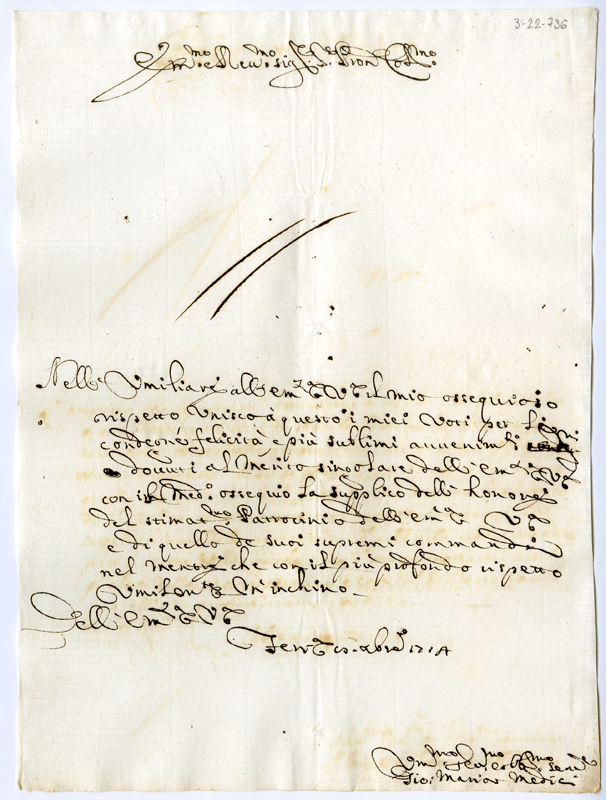 3-22-736
Em.mo e Rev.mo Sig.r Sig.r Pron Col.mo
Nell' Umiliarsi all' Em.za V.ra il mio ossequioso
rispetto Unisco à questo i miei Voti per le
condecoré felicità e più sublimi avvenimenti
dovuti al Merito singolare dell' Em.za V.ra
con il Med.o ossequio La supplico dell' honore
del stimat.mo Patrocinio dell' Em.za V.ra
e di quello de suoi supremi commandi
nel mentre che con il più profondo rispetto
Umilm.te M'inchino
Dell' Em.za V.ra
1714
Um.mo Dev.mo et Obb.mo Serv.re
Gio: Maria Medici